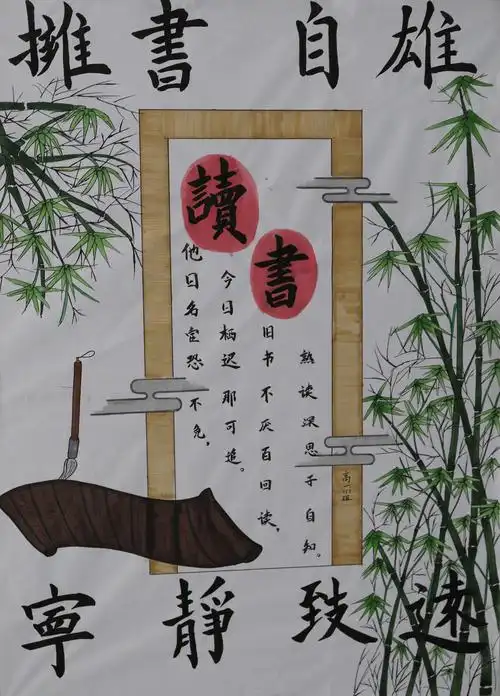 擁書自雄
讀書
他日名宦恐不免，
今日栖迟那可追。
旧书不厌百回读，
熟读深思子自知。
寧靜致遠